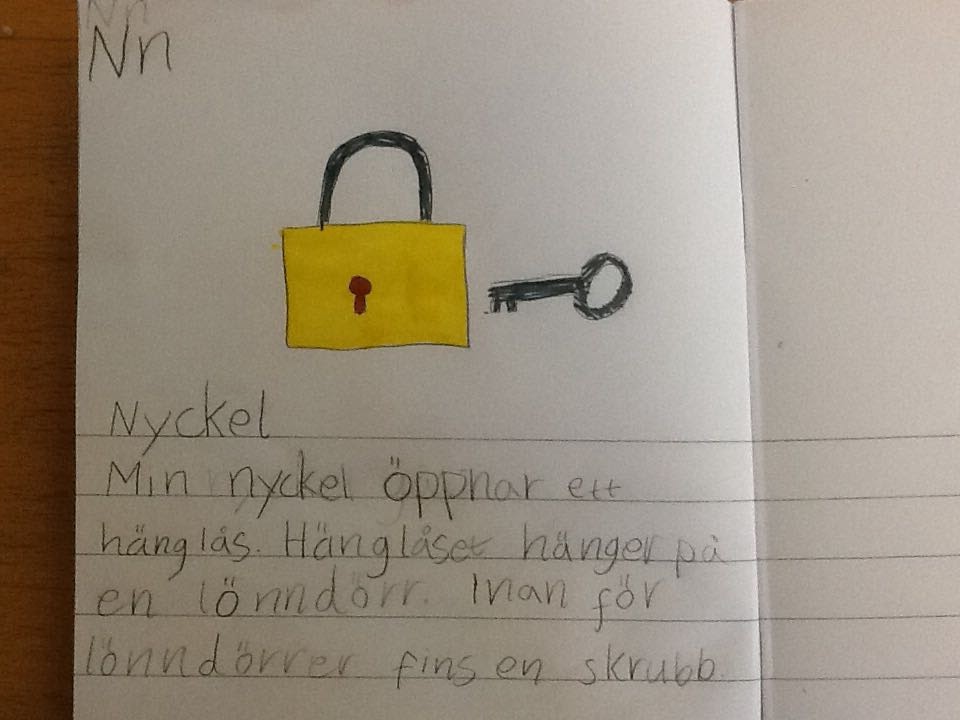 Nn
Nn
Nyckel
Min nyckel öppnar ett
hänglås. Hänglåset hänger på
en lönndörr. Inan för
lönndörrer fins en skrubb.